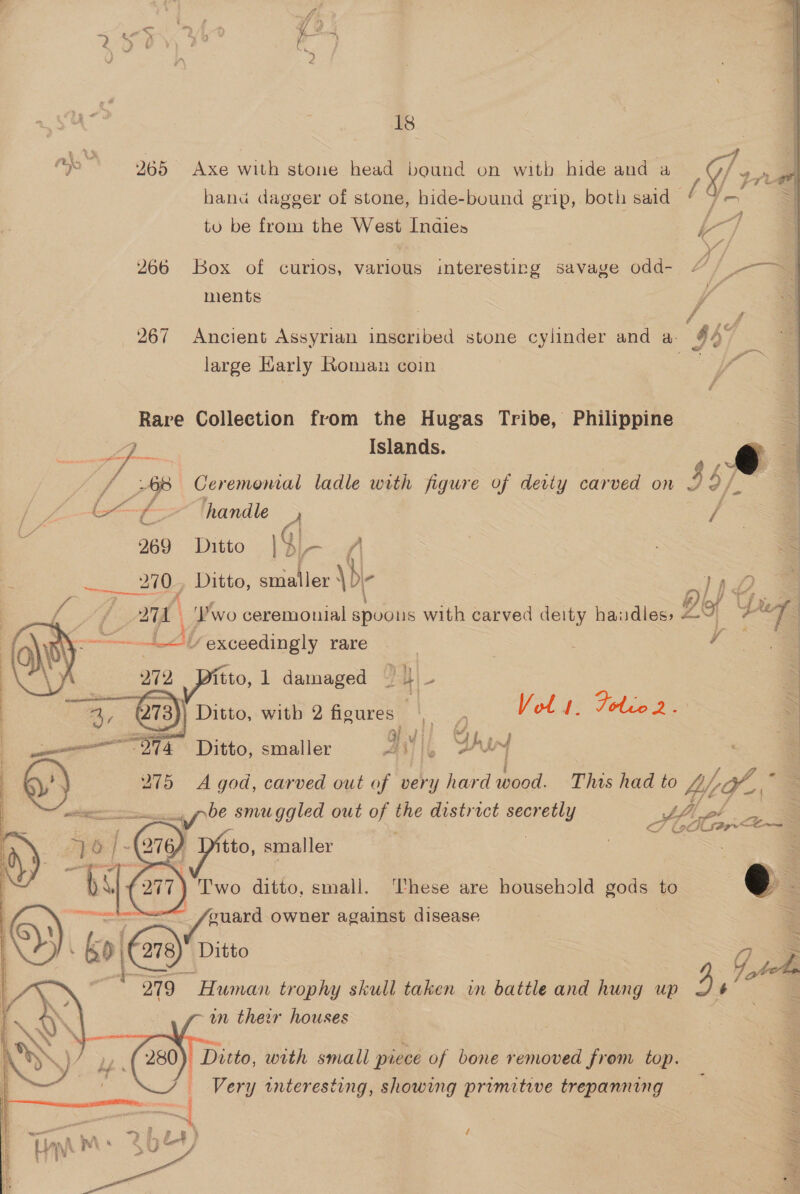 18
265 Axe with stone head bound on with hide and a
hand dagger of stone, hide-bound grip, both said
to be from the West Indies
266 Box of curios, various interesting savage odd-
ments
267 Ancient Assyrian inscribed stone cylinder and a
large Early Roman coin
Rare Collection from the Hugas Tribe, Philippine
Islands.
68 Ceremonial ladle with figure of deity carved on
handle
269 Ditto
270 Ditto, smaller
271 Two ceremonial spoons with carved deity handles,
exceedingly rare
272 Ditto, 1 damaged
273 Ditto, with 2 figures Vol 1. Folio 2.
274 Ditto, smaller
275 A god, carved out of very hard wood. This had to
be smuggled out of the district secretly
276 Ditto, smaller
277 Two ditto, small. These are household gods to
guard owner against disease
278 Ditto
279 Human trophy skull taken in battle and hung up
in their houses
280 Ditto, with small piece of bone removed from top.
Very interesting, showing primitive trepanning